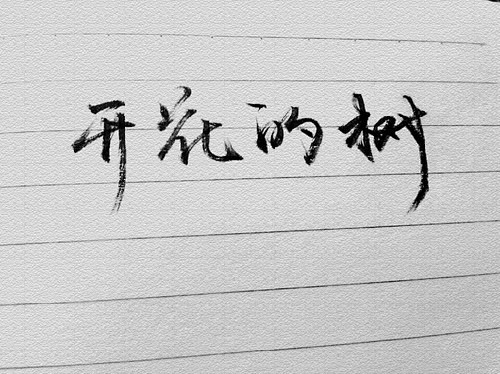 开花的树